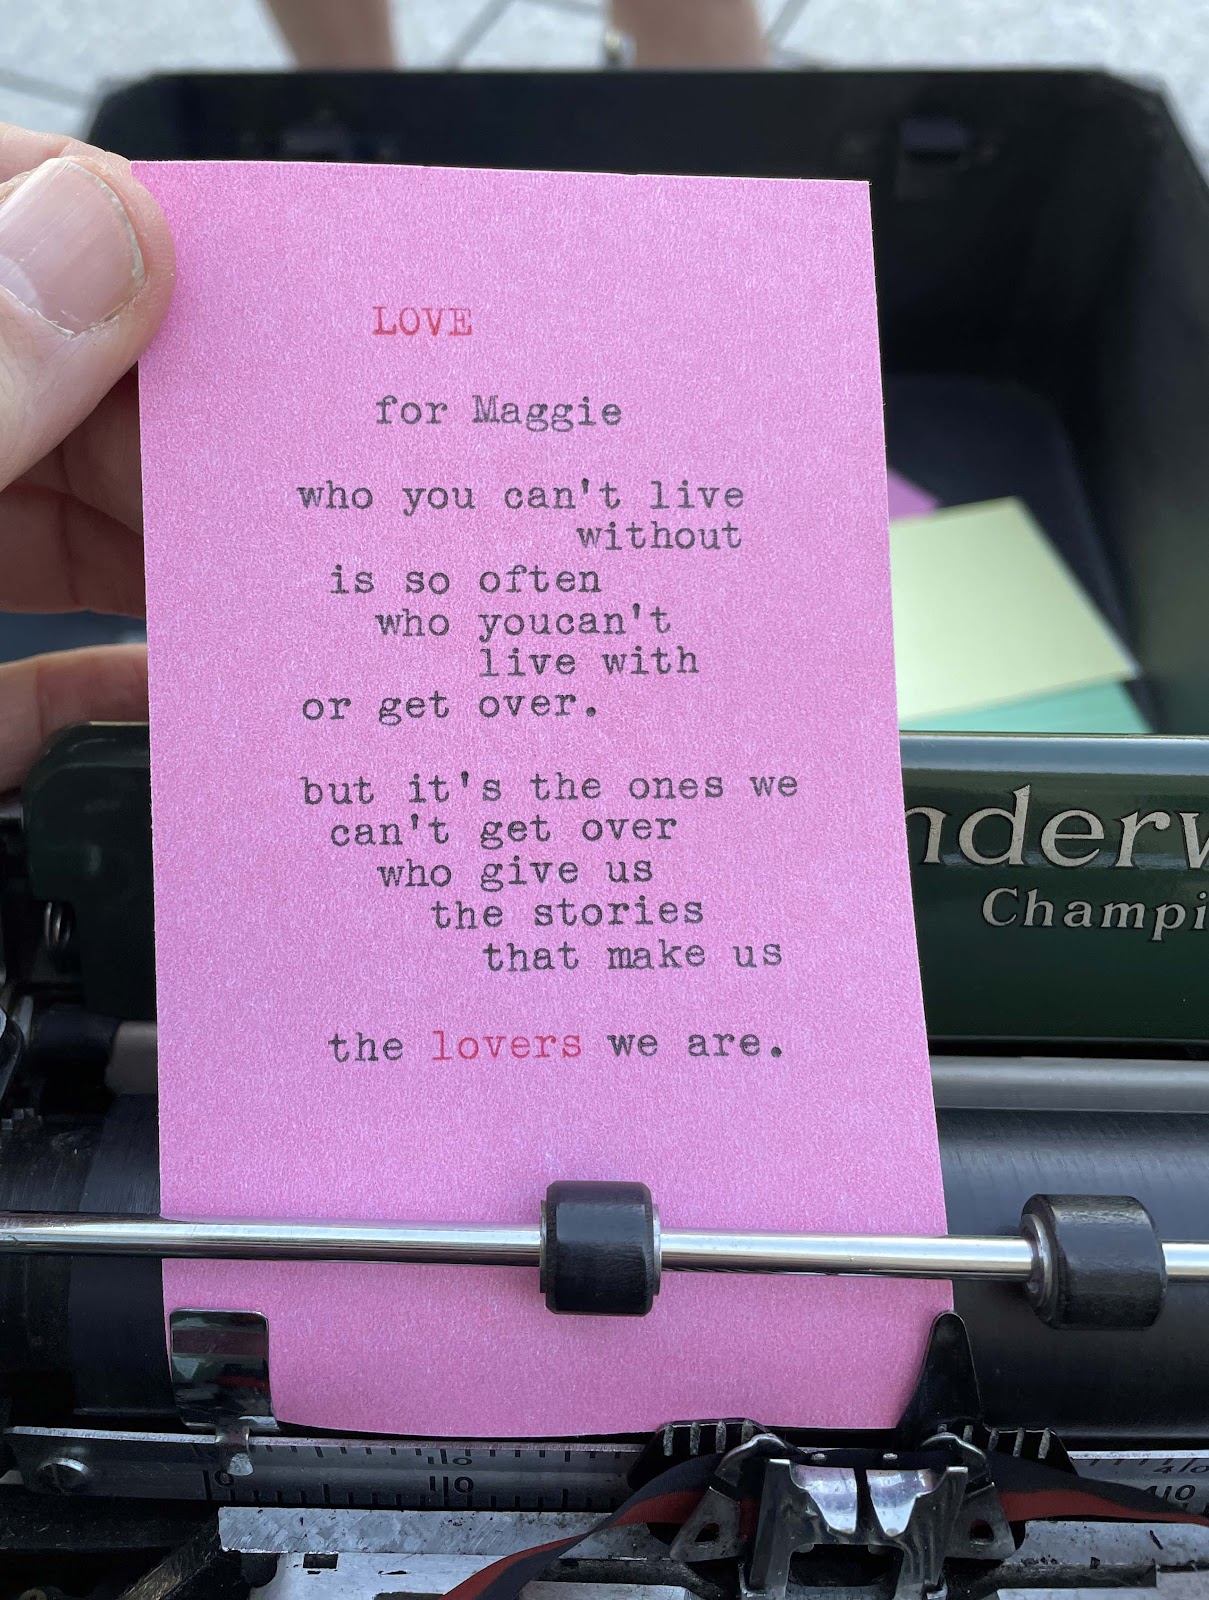 LOVE
for Maggie
who you can't live
without
is so often
who youcan't
live with
or get over.
but it's the ones we
can't get over
who give us
the stories
that make us
the lovers we are.
nderw
Champi
0
10
0
10
40